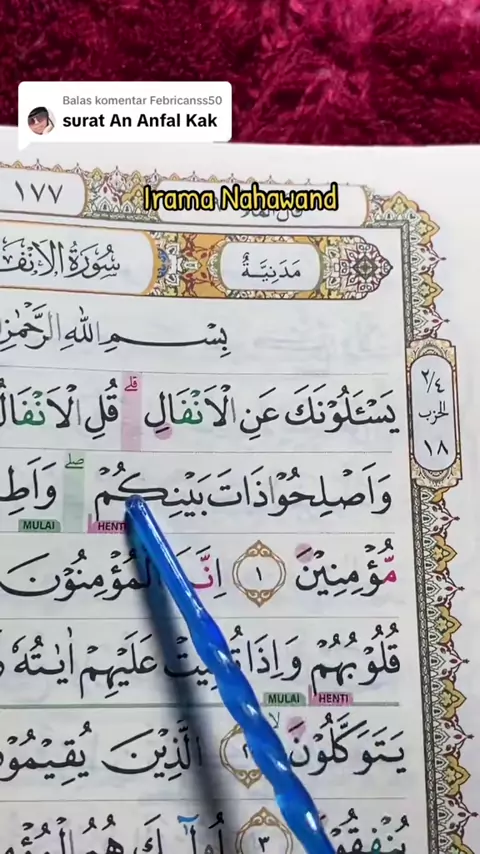 Balas komentar Febricanss50
surat An Anfal Kak
١٧٧
Irama Nahawand
مَدَنِيَّةٌ
سُوْرَةُ الْاَنْفَ
بِسْمِ اللّٰهِ الرَّحْمٰنِ
٢/٤
الحزب
١٨
يَسْـَٔلُوْنَكَ عَنِ الْاَنْفَالِ ۗ قُلِ الْاَنْفَالُ
وَاَصْلِحُوْا ذَاتَ بَيْنِكُمْ ۖ وَاَطِ
HENTI MULAI
مُّؤْمِنِيْنَ ١ اِنَّ الْمُؤْمِنُوْنَ
قُلُوْبُهُمْ وَاِذَا تُلِيَتْ عَلَيْهِمْ اٰيٰتُهٗ
HENTI MULAI
يَتَوَكَّلُوْنَ ۙ الَّذِيْنَ يُقِيْمُوْ
يُنْفِقُوْنَ ٣ اُولٰۤىِٕكَ هُمُ الْمُؤْ